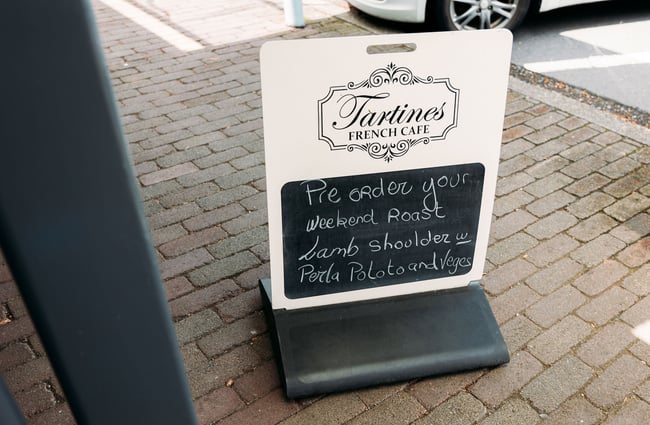 Tartines
FRENCH CAFE
Pre order your
weekend Roast
Lamb shoulder w
Perla Pototo and Veges